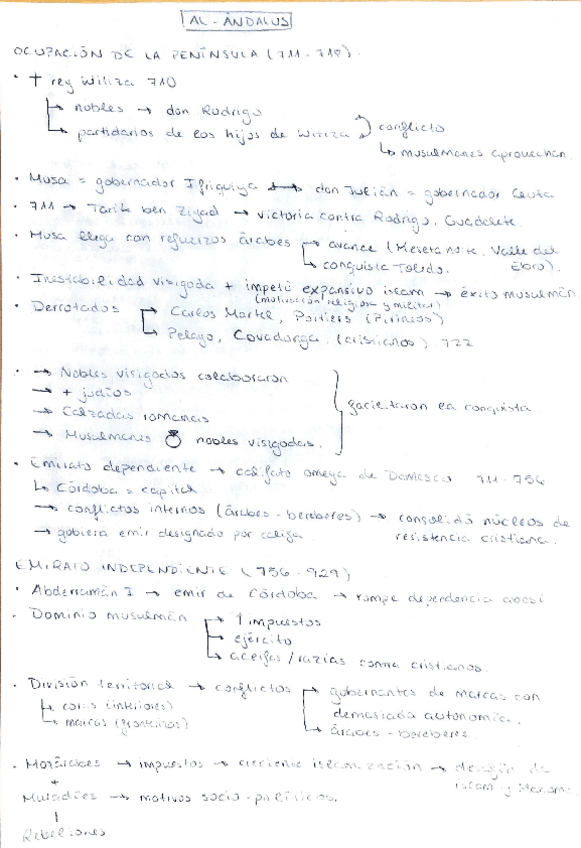 AL-ÁNDALUS
OCUPACIÓN DE LA PENÍNSULA (711-718).
· † rey Witiza 710
→ nobles → don Rodrigo
→ partidarios de los hijos de Witiza } conflicto
↳ musulmanes aprovechan.
· Musa = gobernador Ifriquiya ↔ don Julián = gobernador Ceuta
· 711 → Tarik ben Ziyad → victoria contra Rodrigo. Guadalete.
· Musa llega con refuerzos árabes → avance (Meseta norte, Valle del Ebro).
→ conquista Toledo.
· Inestabilidad visigoda + ímpetu expansivo islam → éxito musulmán
(motivación religiosa y militar)
· Derrotados → Carlos Martel, Poitiers (Pirineos)
→ Pelayo, Covadonga. (cristianos) 722
· → Nobles visigodos colaboraron
→ + judíos
→ Calzadas romanas
→ Musulmanes 💍 nobles visigodas. } facilitaron la conquista
· Emirato dependiente → califato omeya de Damasco 711-756
↳ Córdoba = capital
→ conflictos internos (árabes-bereberes) → consolidó núcleos de resistencia cristiana.
→ gobierna emir designado por califa.
EMIRATO INDEPENDIENTE (756-929)
· Abderramán I → emir de Córdoba → rompe dependencia
· Dominio musulmán → impuestos
→ ejército
→ aceifas/razias contra cristianos.
· División territorial → conflictos → gobernantes de marcas con demasiada autonomía.
↳ coras (interiores)
↳ marcas (fronterizos)
→ árabes-bereberes.
· Mozárabes → impuestos → creciente islamización → de islam y
+
Muladíes → motivos socio-políticos.
Rebeliones